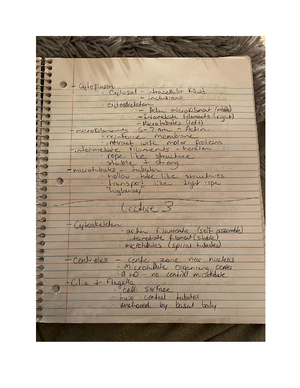 - Cytoplasm
- Cytosol - intracellular fluid
- inclusions
- cytoskeleton
- Actin microfilament (middle)
- Intermediate filaments (right)
- Microtubules (left)
- microfilaments 6-7 nm - Actin
- reinforce membrane
- interact with motor proteins
- intermediate filaments - keratin
- rope like structure
- stable & strong
- microtubules - tubulin
- hollow tube like structures
- transport like tight rope
Lecture 3
- Cytoskeleton
- actin filaments (self assemble)
- intermediate filament (stable)
- microtubules (spiral tubules)
- Centrioles - center zone near nucleus
- Microtubule organizing center
- 9+0 - no central microtubule
- Cilia + Flagella
- cell surface
- two central tubules
- anchored by basal body